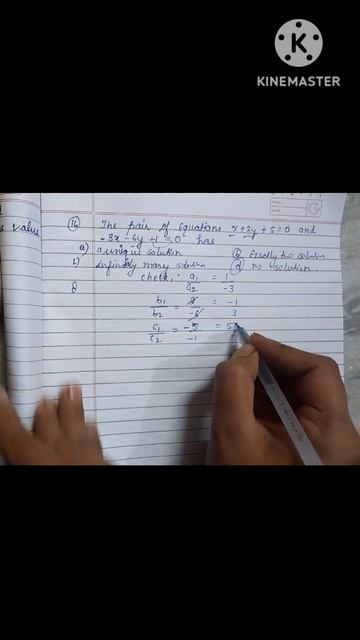 KINEMASTER
value
(16) The pair of equations x + 2y + 5 = 0 and
-3x - 6y + 1 = 0 has
a) a unique solution (b) Exactly two solution
c) Infinitely many solution (d) no solution.
check, a₁/a₂ = 1/-3
b₁/b₂ = 2/-6 = -1/3
c₁/c₂ = -5/-1 = 5